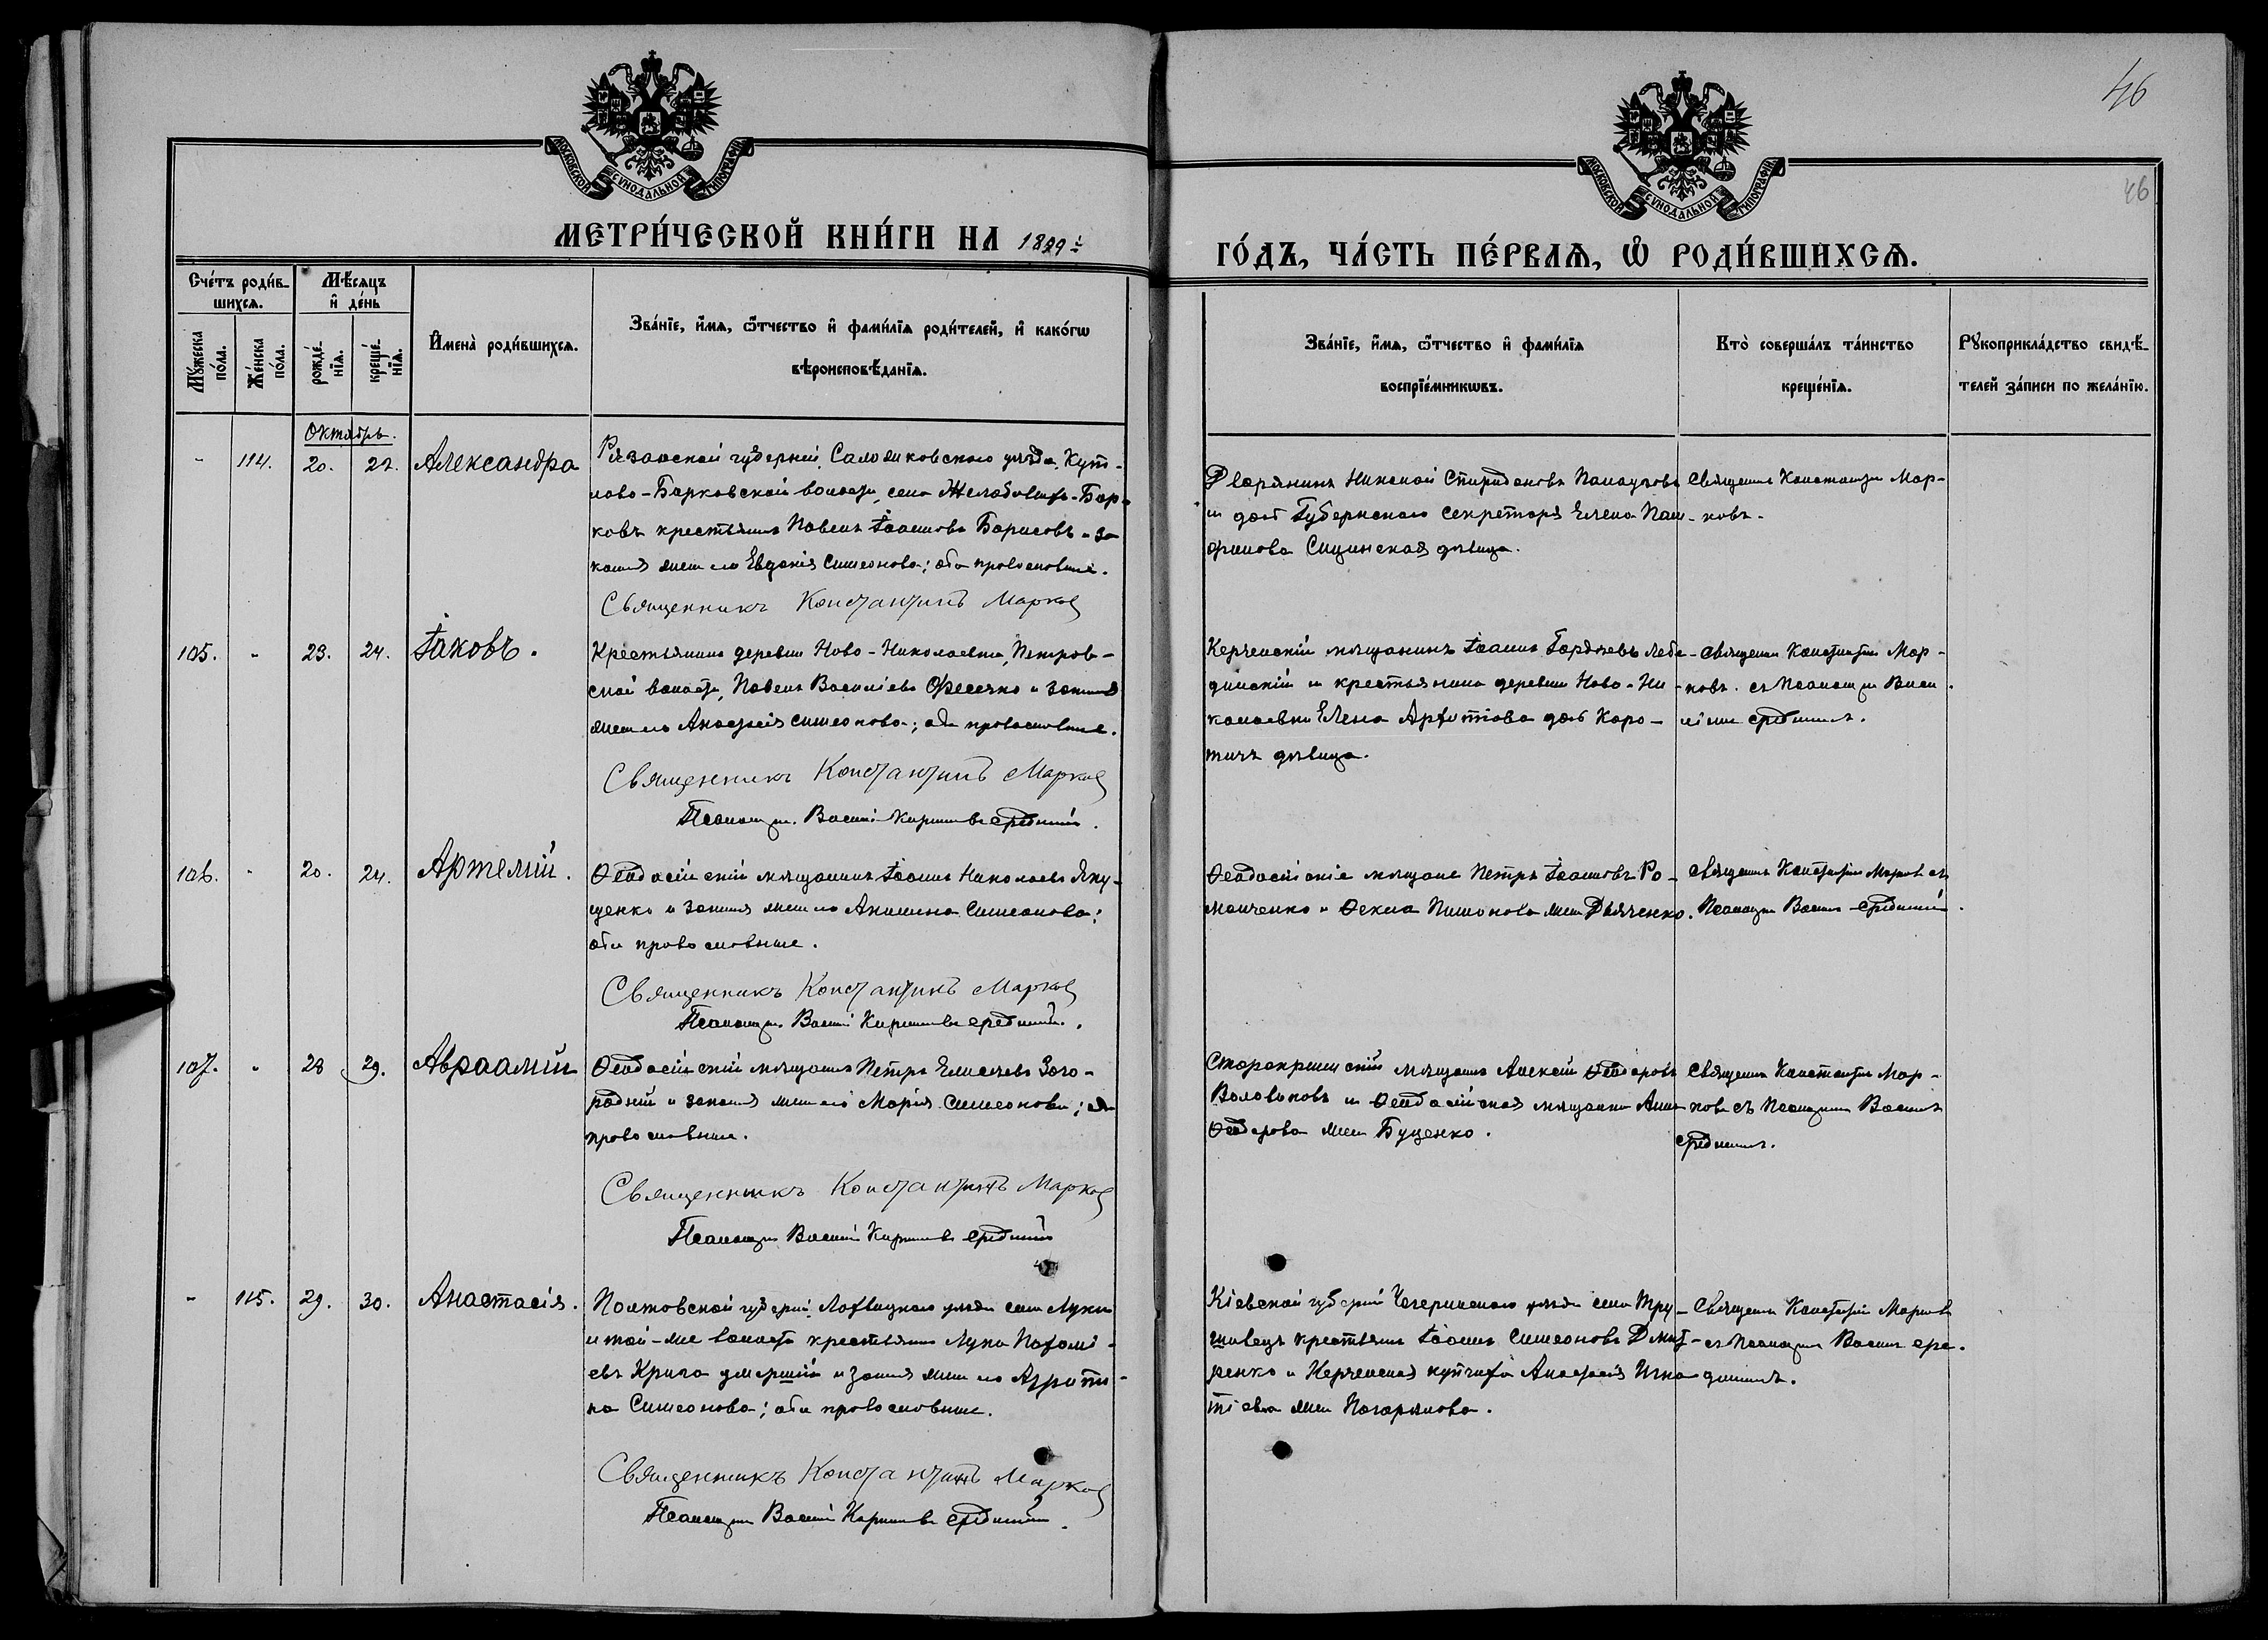 46
46
МОСКОВСКОЙ СѴНОДАЛЬНОЙ ТИПОГРАФІИ
МОСКОВСКОЙ СѴНОДАЛЬНОЙ ТИПОГРАФІИ
МЕТРИ́ЧЕСКОЙ КНИ́ГИ НА 1899
ГО́ДЪ, ЧА́СТЬ ПЕ́РВАѦ, Ѡ РОДИ́ВШИХСѦ.
Сче́тъ роди́в-
шихсѧ.
Мѣ́сѧцъ
и де́нь
Мꙋ́жеска
по́ла.
Же́нска
по́ла.
рожде́-
нїѧ.
креще́-
нїѧ.
Имена̀ роди́вшихсѧ.
Зва́нїе, и́мѧ, ѻ́тчество и фами́лїѧ роди́телей, и како́гѡ
вѣроисповѣ́данїѧ.
Зва́нїе, и́мѧ, ѻ́тчество и фами́лїѧ
воспрїе́мникѡвъ.
Кто̀ соверша́лъ та́инство
креще́нїѧ.
Рꙋкоприкла́дство свидѣ́-
телей за́писи по жела́нїю.
Октябрь.
- 114. 20. 22. Александра
Рязанской губерніи, уѣзда,
Барковской волости, села Желобовыхъ-Бор-
ковъ крестьянинъ Павелъ Іоанновъ Борисовъ и за-
конная жена его Евдокія Симеонова; оба православные.
Священникъ Константинъ Марковъ
Дворянинъ Николай Спиридоновъ
и дочь Губернскаго секретаря Елена
Сицинская дѣвица.
Священникъ Константинъ Мар-
ковъ.
105. - 23. 24. Іаковъ.
Крестьянинъ деревни Ново-Николаевки, Петров-
ской волости, Павелъ Васильевъ Фесечко и законная
жена его Анастасія Симеонова; оба православные.
Священникъ Константинъ Марковъ
Псаломщикъ Василій Средницкій.
Керченскій мѣщанинъ Іоаннъ Гордѣевъ Лебе-
динскій и крестьянина деревни Ново-Ни-
колаевки Елена дочь Коро-
тичъ дѣвица.
Священникъ Константинъ Мар-
ковъ съ Псаломщикомъ Васи-
ліемъ
106. - 20. 24. Артемій.
Ѳеодосійскій мѣщанинъ Іоаннъ Николаевъ Яку-
щенко и законная жена его Акилина Симеонова;
оба православные.
Священникъ Константинъ Марковъ
Псаломщикъ Василій
Ѳеодосійскіе мѣщане Петръ Іоанновъ Ро-
манченко и Ѳекла жена Дьяченко.
Священникъ Константинъ Марковъ съ
Псаломщикомъ Василіемъ
107. - 28 29. Авраамій
Ѳеодосійскій мѣщанинъ Петръ Елисеевъ Заго-
родній и законная жена его Марія Симеонова; оба
православные.
Священникъ Константинъ Марковъ
Псаломщикъ Василій
Старокрымскій мѣщанинъ Алексій Ѳеодоровъ
Воловиковъ и Ѳеодосійская мѣщанка Анна
Ѳеодорова жена Буценко.
Священникъ Константинъ Мар-
ковъ съ Псаломщикомъ Василіемъ
- 115. 29. 30. Анастасія.
Полтавской губерніи Лохвицкаго уѣзда села Луки
и той-же волости крестьянинъ Лука
Крига умершій и законная жена его Агрипи-
на Симеонова; оба православные.
Священникъ Константинъ Марковъ
Псаломщикъ Василій
Кіевской губерніи Чигиринскаго уѣзда села Тру-
шовецъ крестьянинъ Іоаннъ Симеоновъ Дмит-
ренко и Керченская купчиха Анастасія Игна-
тіева жена Погорѣлова.
Священникъ Константинъ Марковъ
съ Псаломщикомъ Василіемъ Сре-